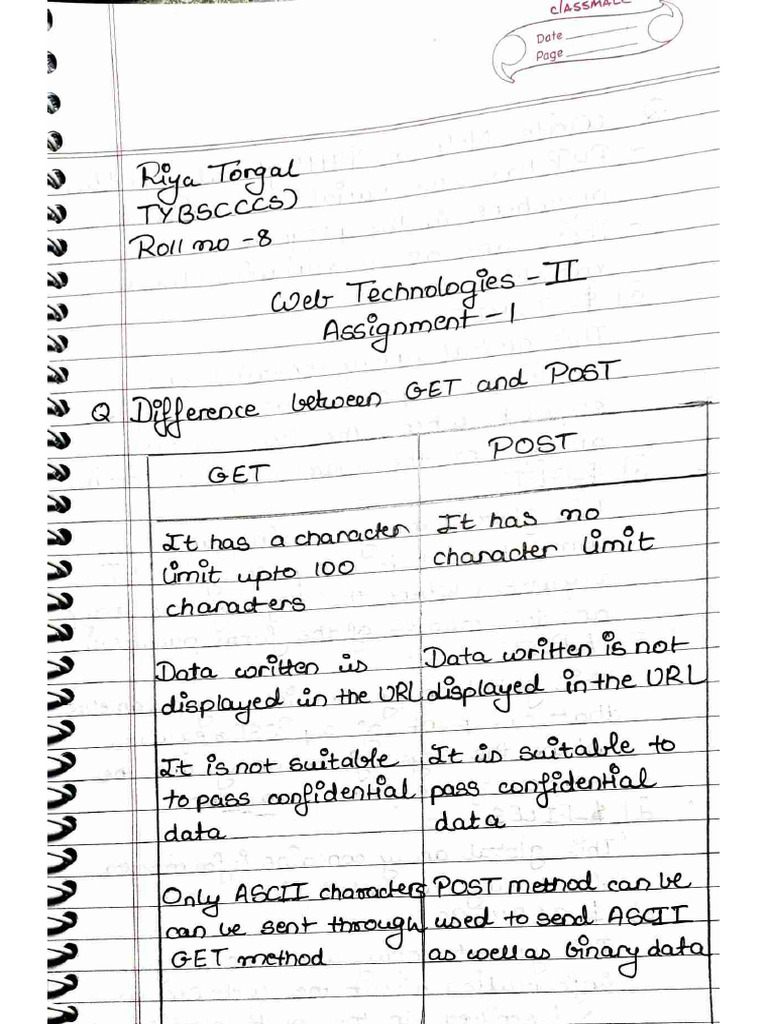 classmate
Date
Page
Riya Torgal
TYBSCCCS)
Roll no -8
Web Technologies - II
Assignment - 1
Q Difference between GET and POST
GET
POST
It has a character
limit upto 100
characters
It has no
character limit
Data written is
displayed in the URL
Data written is not
displayed in the URL
It is not suitable
to pass confidential
data
It is suitable to
pass confidential
data
Only ASCII characters
can be sent through
GET method
POST method can be
used to send ASCII
as well as binary data